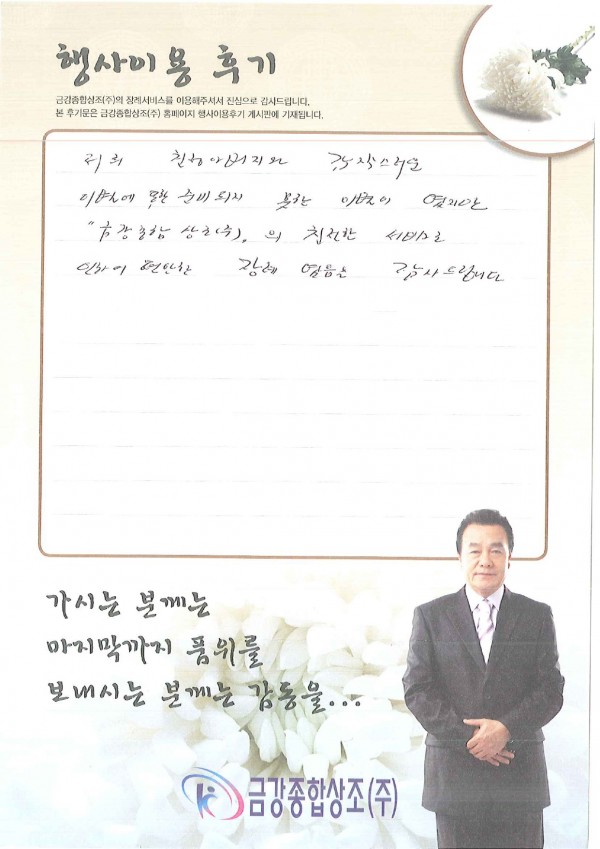 행사이용 후기
금강종합상조(주)의 장례서비스를 이용해주셔서 진심으로 감사드립니다.
본 후기문은 금강종합상조(주) 홈페이지 행사이용후기 게시판에 기재됩니다.
저희 친할아버지와 갑작스러운
이별에 준비되지 못한 이별이 였지만
"금강종합 상조(주)"의 친절한 서비스로
인하여 편안한 장례 감사드립니다
가시는 분께는
마지막까지 품위를
보내시는 분께는 감동을...
금강종합상조(주)